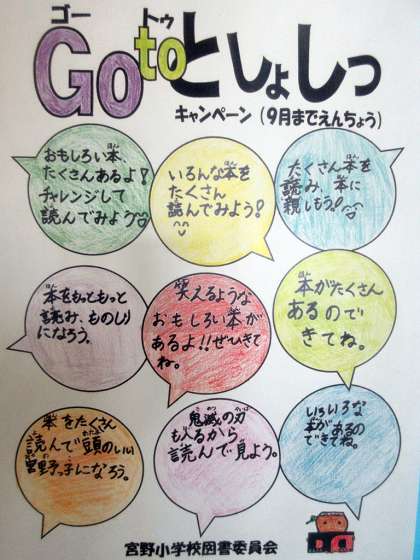 ゴー トゥ
Go to としょしつ
キャンペーン(9月までえんちょう)
おもしろい本、
たくさんあるよ!
チャレンジして
読んでみよう
いろんな本を
たくさん
読んでみよう!
たくさん本を
読み、本に
親しもう!
本をもっともっと
読み、ものしり
になろう。
笑えるような
おもしろい本が
あるよ!!ぜひきて
ね。
本がたくさん
あるので
きてね。
本をたくさん
読んで頭のいい
宮野っ子になろう。
鬼滅の刃
も入るから
読んで見よう。
いろいろな
本があるの
できてね。
宮野小学校図書委員会